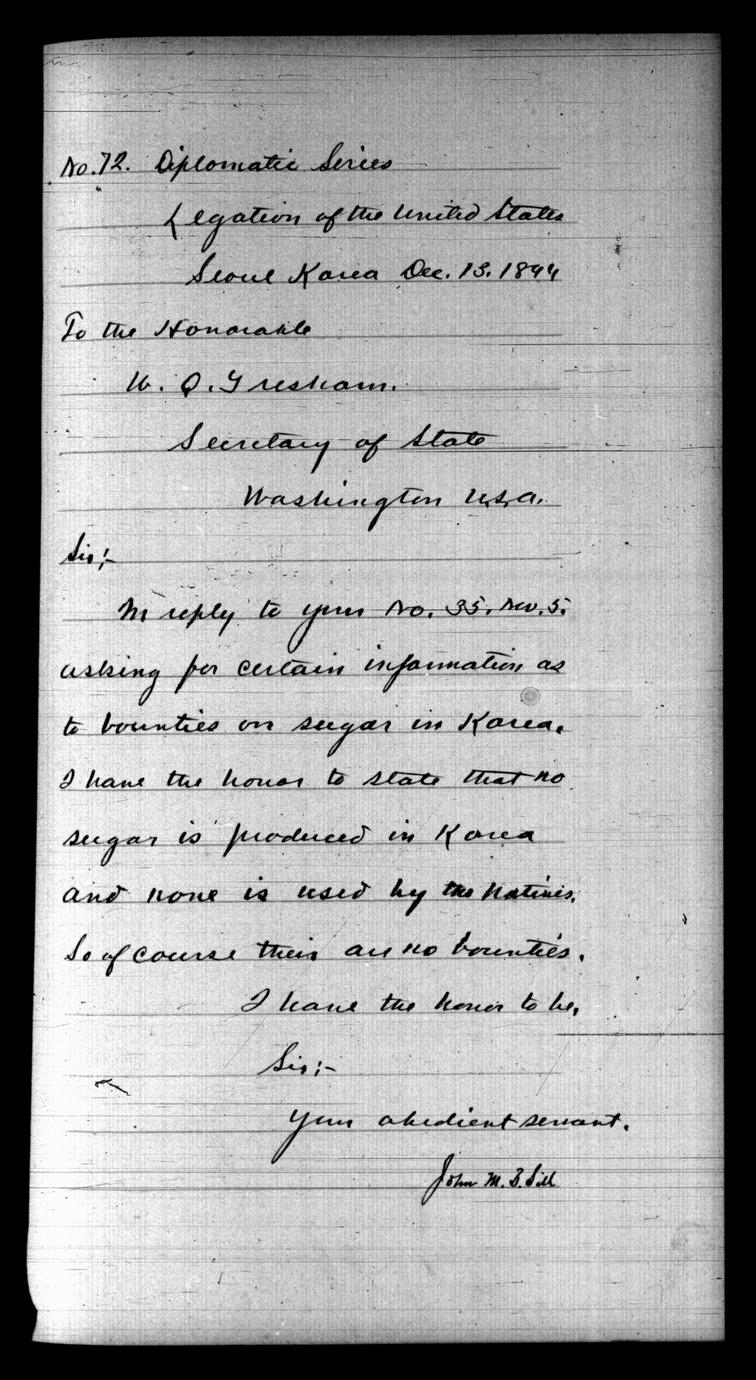 No. 72. Diplomatic Series
Legation of the United States
Seoul Korea Dec. 13. 1894
To the Honorable
W. Q. Gresham.
Secretary of State
Washington U.S.A.
Sir;-
In reply to your No. 35. Nov. 5.
asking for certain information as
to bounties on sugar in Korea.
I have the honor to state that no
sugar is produced in Korea
and none is used by the natives.
So of course their are no bounties.
I have the honor to be,
Sir;-
Your obedient servant.
John M. B. Sill